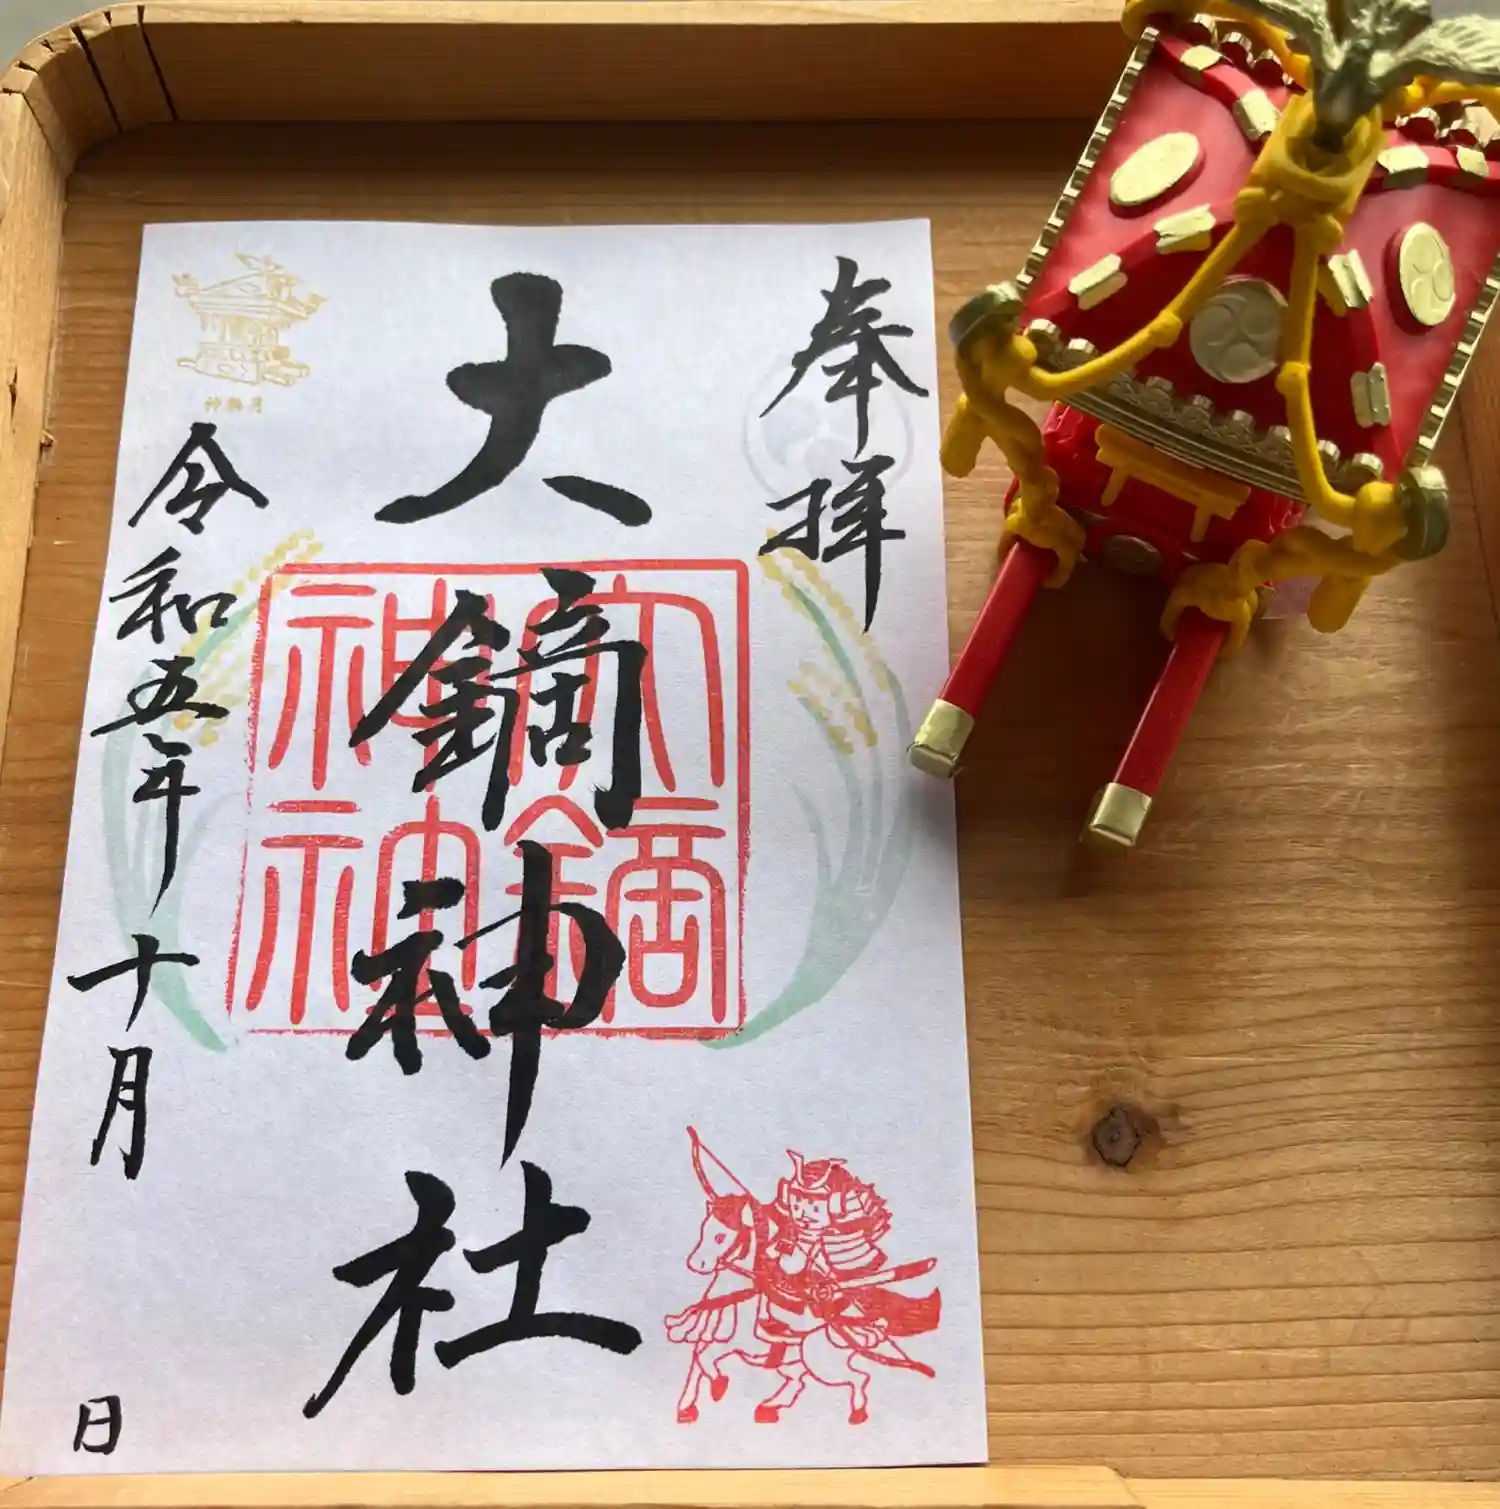 奉拝
大鏑神社
大鏑
神社
神輿月
令和五年十月
日